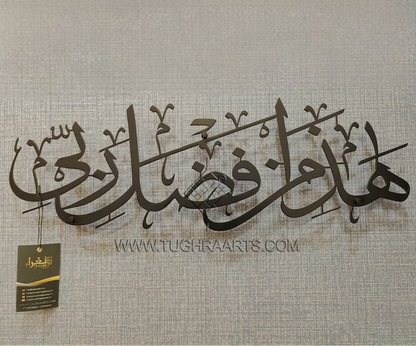 هَذَا مِن فَضْلِ رَبِّي
WWW.TUGHRAARTS.COM
طغراء